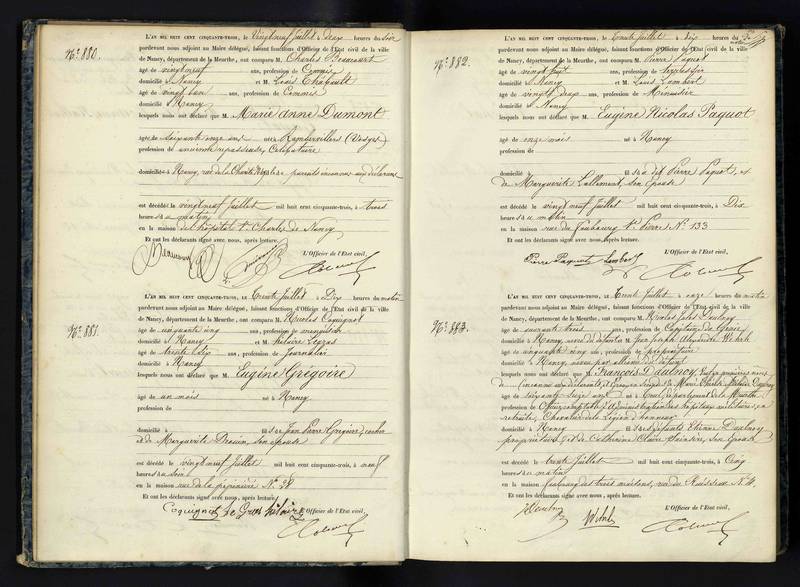 N.° 880.
L'AN MIL HUIT CENT CINQUANTE-TROIS, le Vingt neuf Juillet à deux heures du soir
pardevant nous adjoint au Maire délégué, faisant fonctions d'Officier de l'Etat civil de la ville
de Nancy, département de la Meurthe, ont comparu M. Charles
âgé de vingt neuf ans, profession de Commis
domicilié à Nancy et M. Louis
âgé de vingt ans, profession de Commis
domicilié à Nancy
lesquels nous ont déclaré que M. Marie Anne Dumont
âgée de soixante onze ans née à Rambervillers (Vosges)
profession de ancienne repasseuse, Célibataire
domicilié à Nancy, rue de la Charité fille de parents inconnus aux déclarans
est décédé le vingt neuf Juillet mil huit cent cinquante-trois, à trois
heures du matin
en la maison de l'hôpital St Charles de Nancy
Et ont les déclarants signé avec nous, après lecture.
L'Officier de l'Etat civil,
N.° 881.
L'AN MIL HUIT CENT CINQUANTE-TROIS, le Trente Juillet à Dix heures du matin
pardevant nous adjoint au Maire délégué, faisant fonctions d'Officier de l'Etat civil de la ville
de Nancy, département de la Meurthe, ont comparu M. Nicolas Coquignot
âgé de cinquante cinq ans, profession de menuisier
domicilié à Nancy et M. hilaire
âgé de trente six ans, profession de Journalier
domicilié à Nancy
lesquels nous ont déclaré que M. Eugène Grégoire
âgé de un mois né à Nancy
profession de
domicilié à fils de Jean Pierre Grégoire, cocher
et de Marguerite Drouin, son épouse
est décédé le vingt neuf Juillet mil huit cent cinquante-trois, à neuf
heures du soir
en la maison rue de la pépinière N.° 28
Et ont les déclarants signé avec nous, après lecture.
Coquignot hilaire L'Officier de l'Etat civil,
N.° 882.
L'AN MIL HUIT CENT CINQUANTE-TROIS, le Trente Juillet à dix heures du matin
pardevant nous adjoint au Maire délégué, faisant fonctions d'Officier de l'Etat civil de la ville
de Nancy, département de la Meurthe, ont comparu M. Pierre Paquot
âgé de vingt huit ans, profession de
domicilié à Nancy et M. Louis Lambert
âgé de vingt deux ans, profession de Menuisier
domicilié à Nancy
lesquels nous ont déclaré que M. Eugène Nicolas Paquot
âgé de onze mois né à Nancy
profession de
domicilié à fils du dit Pierre Paquot, et
de Marguerite Lallement son épouse
est décédé le vingt neuf Juillet mil huit cent cinquante-trois, à Dix
heures du matin
en la maison rue du faubourg St Pierre N.° 133
Et ont les déclarants signé avec nous, après lecture.
L'Officier de l'Etat civil,
Pierre Paquot Lambert
N.° 883.
L'AN MIL HUIT CENT CINQUANTE-TROIS, le Trente Juillet à onze heures du matin
pardevant nous adjoint au Maire délégué, faisant fonctions d'Officier de l'Etat civil de la ville
de Nancy, département de la Meurthe, ont comparu M. Nicolas Jules Daulnoy
âgé de quarante trois ans, profession de Capitaine du Génie
domicilié à Nancy, neveu du défunt et M. Jean Joseph Alexandre
âgé de cinquante cinq ans, profession de propriétaire
domicilié à Nancy, neveu par alliance du défunt
lesquels nous ont déclaré que M. François Daulnoy, veuf en premières noces
de (inconnu aux déclarants) et Epoux en secondes de Marie
âgé de soixante seize ans né à Toul, département de la Meurthe
profession de Officier comptable d'administration des hôpitaux militaires, en
retraite, Chevalier de la Légion d'honneur
domicilié à Nancy fils de défunts Etienne Daulnoy
propriétaire, et de Catherine Claire son Epouse
est décédé le trente Juillet mil huit cent cinquante-trois, à Cinq
heures du matin
en la maison faubourg des trois maisons, rue du Ruisseau N.°
Et ont les déclarants signé avec nous, après lecture.
L'Officier de l'Etat civil,
Daulnoy